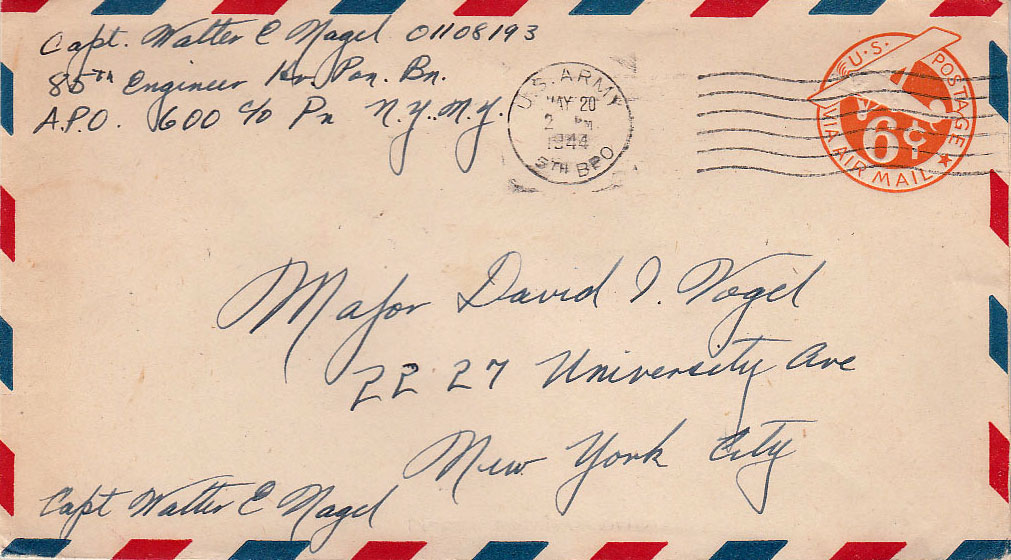 Capt. Walter E Nagel 01108193
85TH Engineer Hv. Pon. Bn.
A.P.O. 600 c/o Pn N.Y. N.Y.
U.S. ARMY
MAY 20
2 PM
1944
5TH BPO
U.S. POSTAGE
6¢
VIA AIR MAIL
Major David I. Vogel
22 27 University Ave
New York City
Capt Walter E Nagel